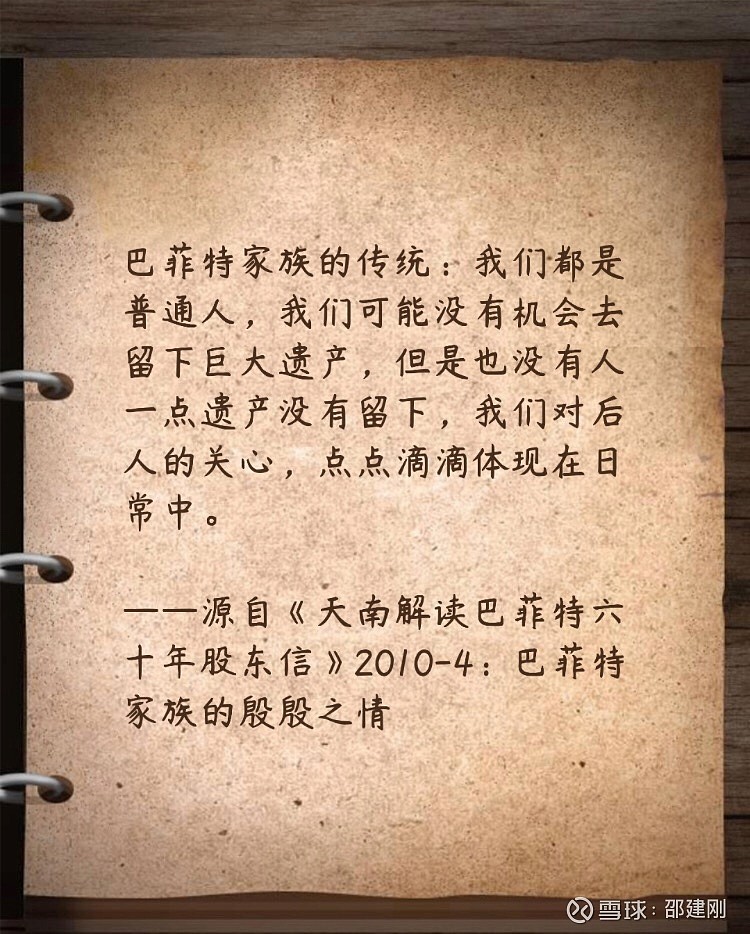 巴菲特家族的传统：我们都是
普通人，我们可能没有机会去
留下巨大遗产，但是也没有人
一点遗产没有留下，我们对后
人的关心，点点滴滴体现在日
常中。
——源自《天南解读巴菲特六
十年股东信》2010-4：巴菲特
家族的殷殷之情
雪球：邵建刚